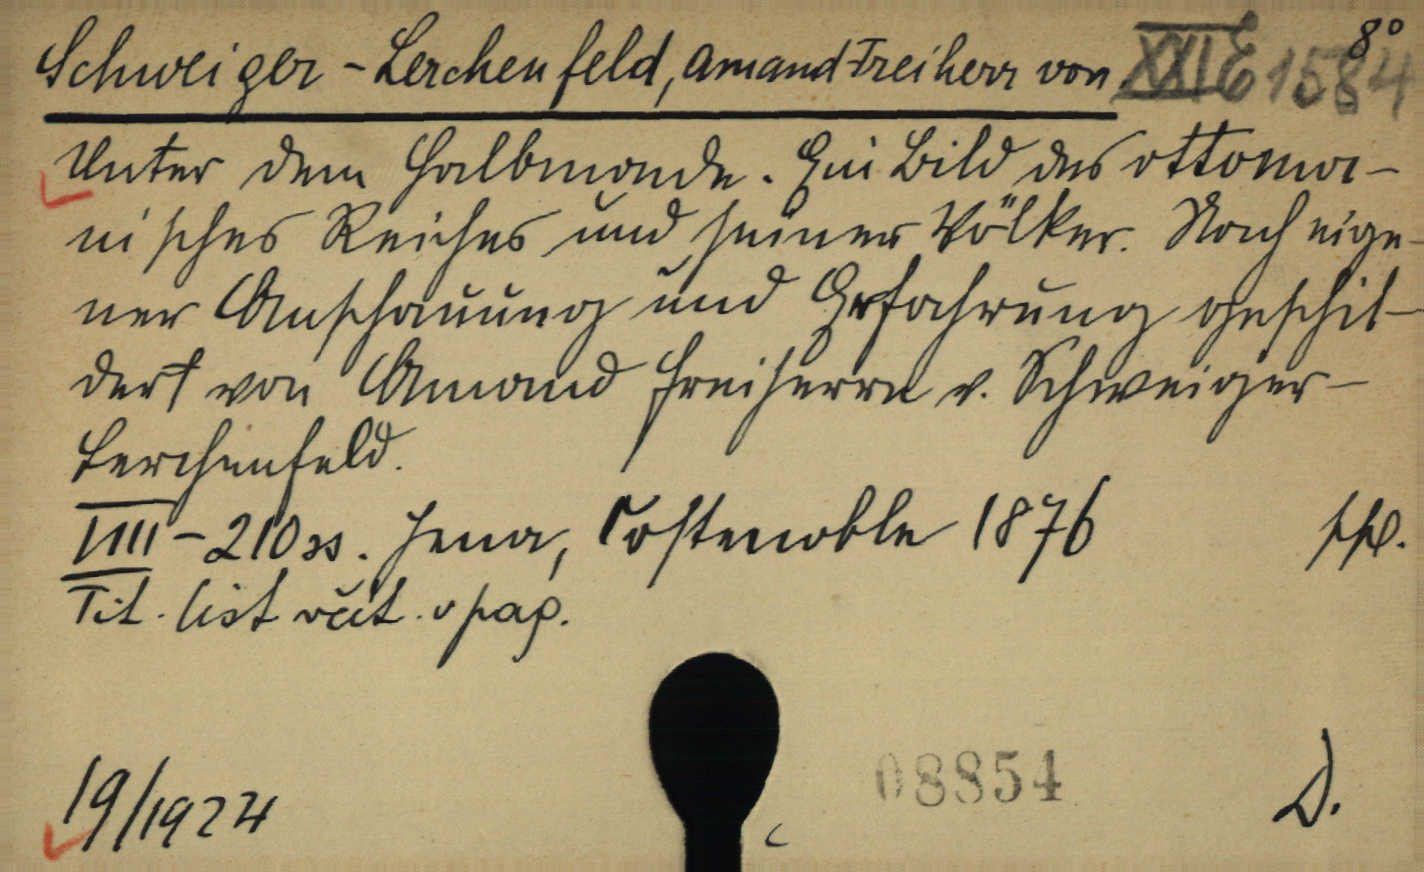 Schweiger-Lerchenfeld, Amand Freiherr von XXII E 1584 8°
Unter dem Halbmonde. Ein Bild des ottoma-
nisches Reiches und seiner Völker. Nach eige-
ner Anschauung und Erfahrung geschil-
dert von Amand Freiherrn v. Schweiger-
Lerchenfeld.
VIII-210 ss. Jena, Costenoble 1876
Tit. list výt. v pap.
19/1924
08854
D.